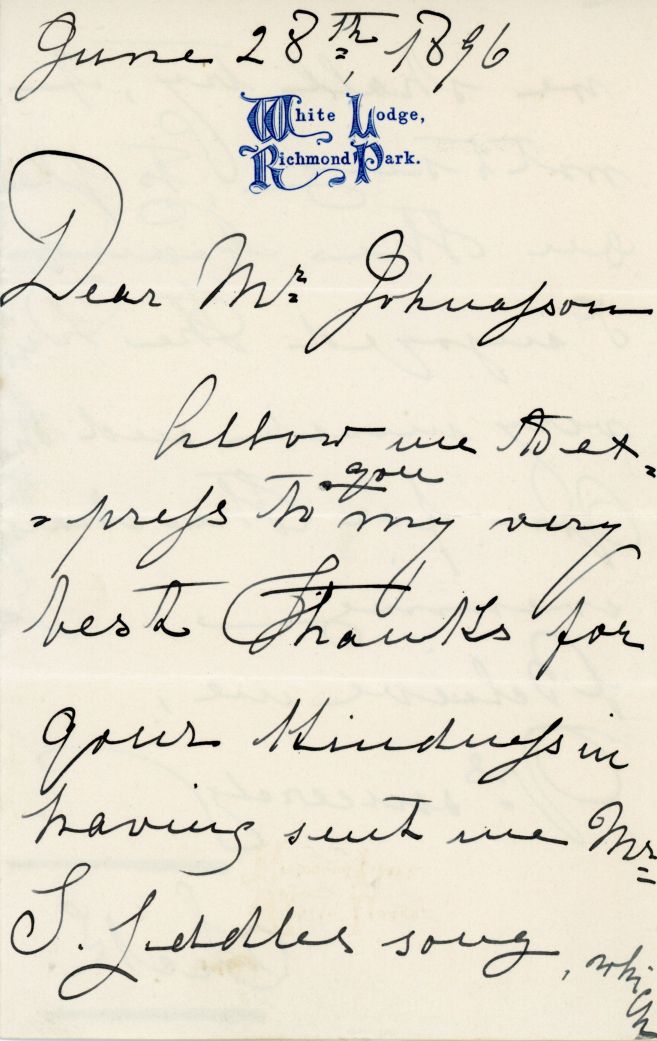 June 28th 1896
White Lodge,
Richmond Park.
Dear Mr Johnasson
Allow me to ex-
you
-press to my very
best Thanks for
your Kindness in
having sent me Mr
S. Liddles song, which